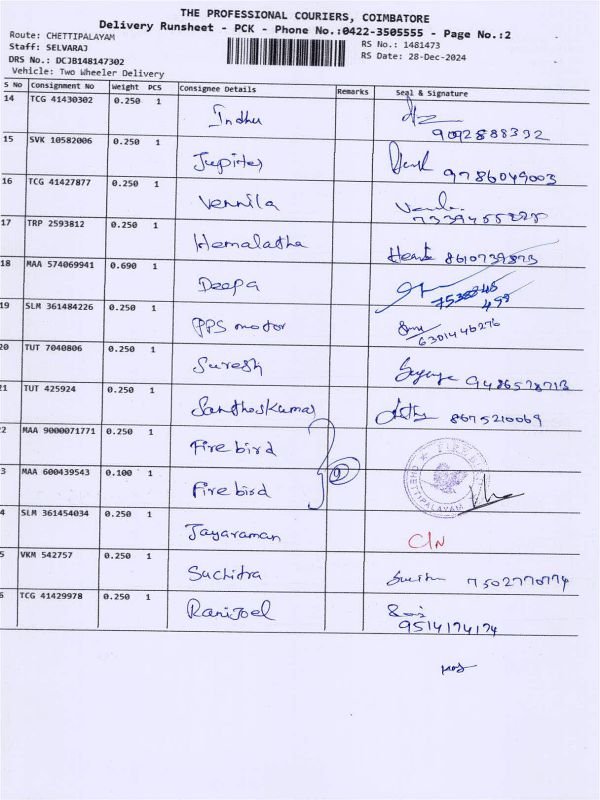 THE PROFESSIONAL COURIERS, COIMBATORE
Delivery Runsheet - PCK - Phone No.:0422-3505555 - Page No.:2
Route: CHETTIPALAYAM
RS No.: 1481473
Staff: SELVARAJ
RS Date: 28-Dec-2024
DRS No.: DCJB148147302
Vehicle: Two Wheeler Delivery
S No Consignment No Weight PCS Consignee Details Remarks Seal & Signature
14 TCG 41430302 0.250 1 Indhu
9092888332
15 SVK 10582006 0.250 1 Jupiter 9786049003
16 TCG 41427877 0.250 1 Vennila
17 TRP 2593812 0.250 1 Hemalatha 8610739873
18 MAA 574069941 0.690 1 Deepa
19 SLM 361484226 0.250 1 PPS motor
6301446276
20 TUT 7040806 0.250 1 Suresh 9486578713
21 TUT 425924 0.250 1 Santhoskumar 8675210069
2 MAA 9000071771 0.250 1 Fire bird
3 MAA 600439543 0.100 1 Fire bird 2
CHETTIPALAYAM
4 SLM 361454034 0.250 1 Jayaraman C/N
5 VKM 542757 0.250 1 Suchitra 7502770774
6 TCG 41429978 0.250 1 Ranijoel
9514174174